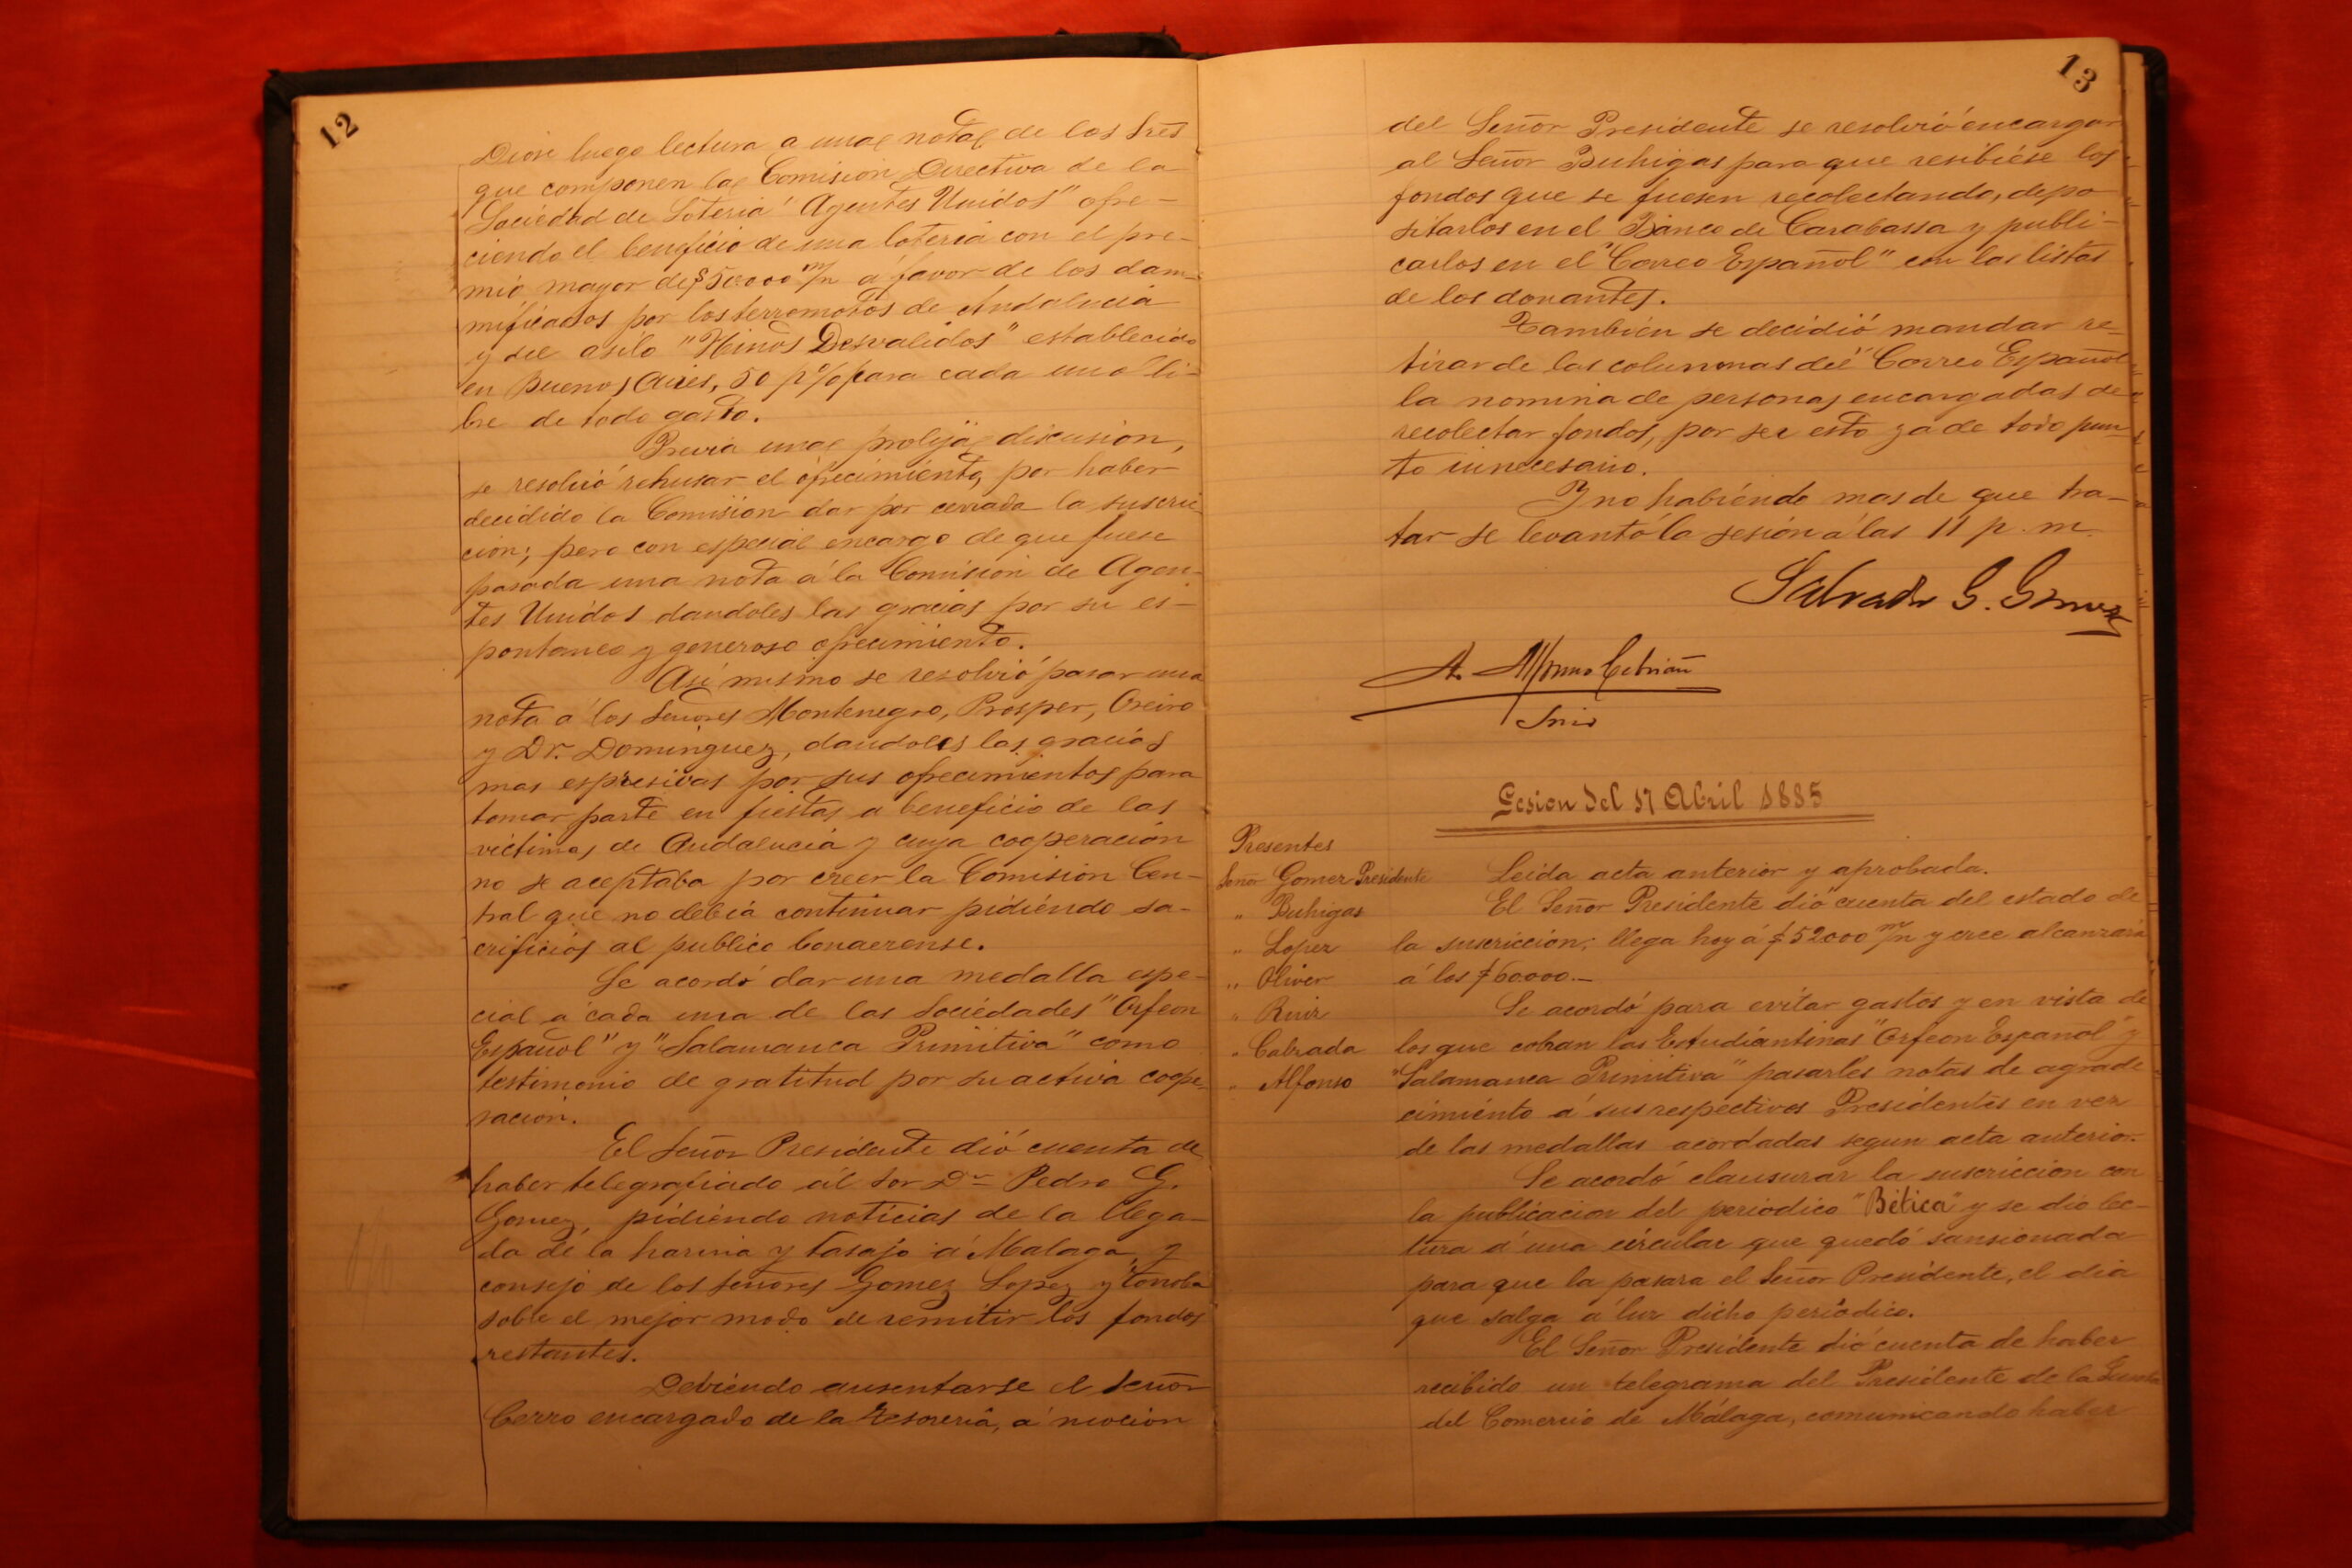 12
Diose luego lectura a una nota de los Sres
que componen la Comision Directiva de la
Sociedad de Loteria "Agentes Unidos" ofre-
ciendo el beneficio de una loteria con el pre-
mio mayor de $50000 m/n á favor de los dam-
nificados por los terremotos de Andalucia
y del asilo "Niños Desvalidos" establecido
en Buenos Aires, 50 p% para cada uno li-
bre de todo gasto.
Previa una prolija discusion,
se resolvió rehusar el ofrecimiento, por haber
decidido la Comision dar por cerrada la suscri-
cion; pero con especial encargo de que fuese
pasada una nota á la Comision de Agen-
tes Unidos dandoles las gracias por su es-
pontaneo y generoso ofrecimiento.
Asi mismo se resolvió pasar una
nota á los Señores Montenegro, Prosper, Oreiro
y Dr. Dominguez, dandoles las gracias
mas espresivas por sus ofrecimientos para
tomar parte en fiestas a beneficio de las
victimas de Andalucia y cuya cooperación
no se aceptaba por creer la Comision Cen-
tral que no debia continuar pidiendo sa-
crificios al publico bonaerense.
Se acordó dar una medalla espe-
cial a cada una de las Sociedades "Orfeon
Español" y "Salamanca Primitiva" como
testimonio de gratitud por su activa coope-
racion.
El Señor Presidente dió cuenta de
haber telegrafiado al Sor Dn Pedro G.
Gomez, pidiendo noticias de la llega-
da de la harina y tasajo á Malaga, y
consejo de los señores Gomez Lopez y
sobre el mejor modo de remitir los fondos
restantes.
Debiendo ausentarse el Señor
Cerro encargado de la Tesoreria, á mocion
13
del Señor Presidente se resolvió encargar
al Señor Buhigas para que resibiése los
fondos que se fuesen recolectando, depo
sitarlos en el Banco de Carabassa y publi-
carlos en el "Correo Español" con las listas
de los donantes.
También se decidió mandar re-
tirar de las columnas del "Correo Español
la nomina de personas encargadas de
recolectar fondos, por ser esto ya de todo pun-
to innecesario.
Y no habiéndo mas de que tra-
tar se levantó la sesión á las 11 p. m.
Salvador G. Gomez
A. Alfonso Cebrian
Srio
Sesion del 17 Abril 1885
Presentes
Señor Gomez Presidente
" Buhigas
" Lopez
" Oliver
" Ruiz
" Calzada
" Alfonso
Leida acta anterior y aprobada.
El Señor Presidente dió cuenta del estado de
la suscriccion; llega hoy á $52000 m/n y cree alcanzará
á los $60000.-
Se acordó para evitar gastos y en vista de
los que cobran las Estudiantinas "Orfeon Español" y
"Salamanca Primitiva" pasarles notas de agrade
cimiénto á sus respectivos Presidentes en vez
de las medallas acordadas segun acta anterior.
Se acordó clausurar la suscriccion con
la publicacion del periodico "Bética" y se dio lec-
tura á una circular que quedó sansionada
para que la pasara el Señor Presidente, el dia
que salga á luz dicho periódico.
El Señor Presidente dió cuenta de haber
recibido un telegrama del Presidente de la Junta
del Comercio de Málaga, comunicando haber